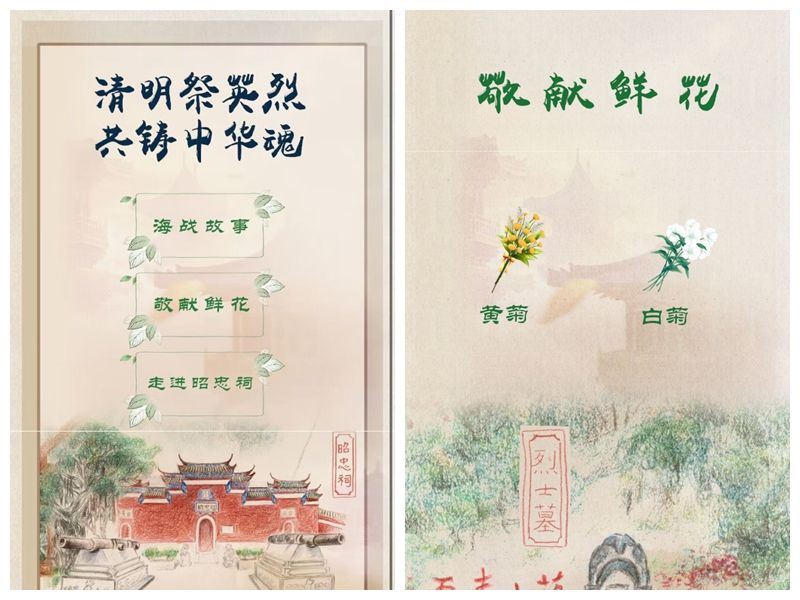 清明祭英烈
共铸中华魂
海战故事
敬献鲜花
走进昭忠祠
昭忠祠
敬献鲜花
黄菊
白菊
烈士墓